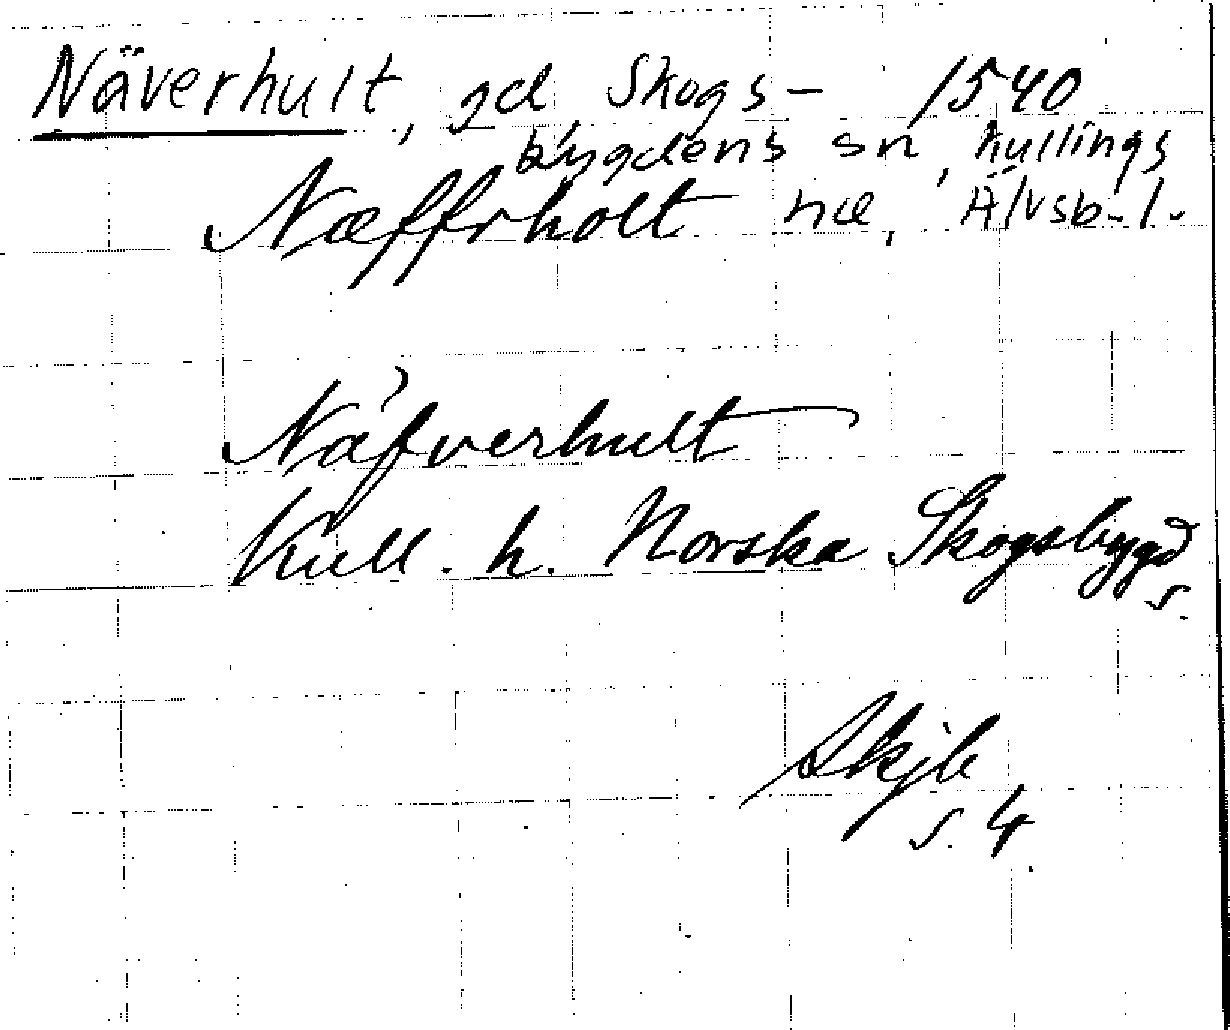 Näverhult, gd Skogs- 1540
bygdens sn, Kullings
Næffrholt hd, Älvsb. l.
Näfverhult
Kull. h. Norska Skogsbygd
s.
Skjb
s. 4